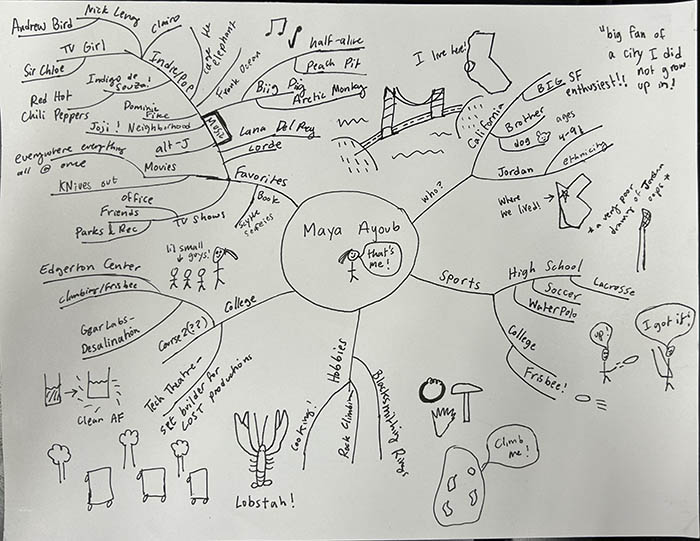 Andrew Bird
Nick Leng
Clairo
cage the
elephant
TV Girl
Sir Chloe
Indie/Pop
Frank Ocean
half-alive
Peach Pit
Big Pig
Arctic Monkey
Red Hot
Chili Peppers
Indigo de
Souza!
Dominic
Fike
Joji!
Neighborhood
alt-J
Music
Lana Del Ray
Lorde
everywhere everything
all @ once
Movies
Knives out
Favorites
office
Friends
Parks & Rec
TV shows
Book
Scythe
series
I live here!
California
BIG SF
enthusiest!!
"big fan of
a city I did
not grow
up in!
who?
Brother
dog
ages
4-9!
Jordan
ethnicity
where
we lived!
* a very poor
drawing of Jordan
oops *
Maya Ayoub
that's
me!
Sports
High School
Lacrosse
Soccer
Water Polo
College
Frisbee!
up!
I got it!
lil small
guys!
Edgerton Center
climbing/frisbee
Gear Labs-
Desalination
Course 2(??)
College
Tech Theatre-
set builder for
LOST productions
Clean AF
Hobbies
Cooking!
Rock Climbing
Blacksmithing Rings
Lobstah!
Climb
me!